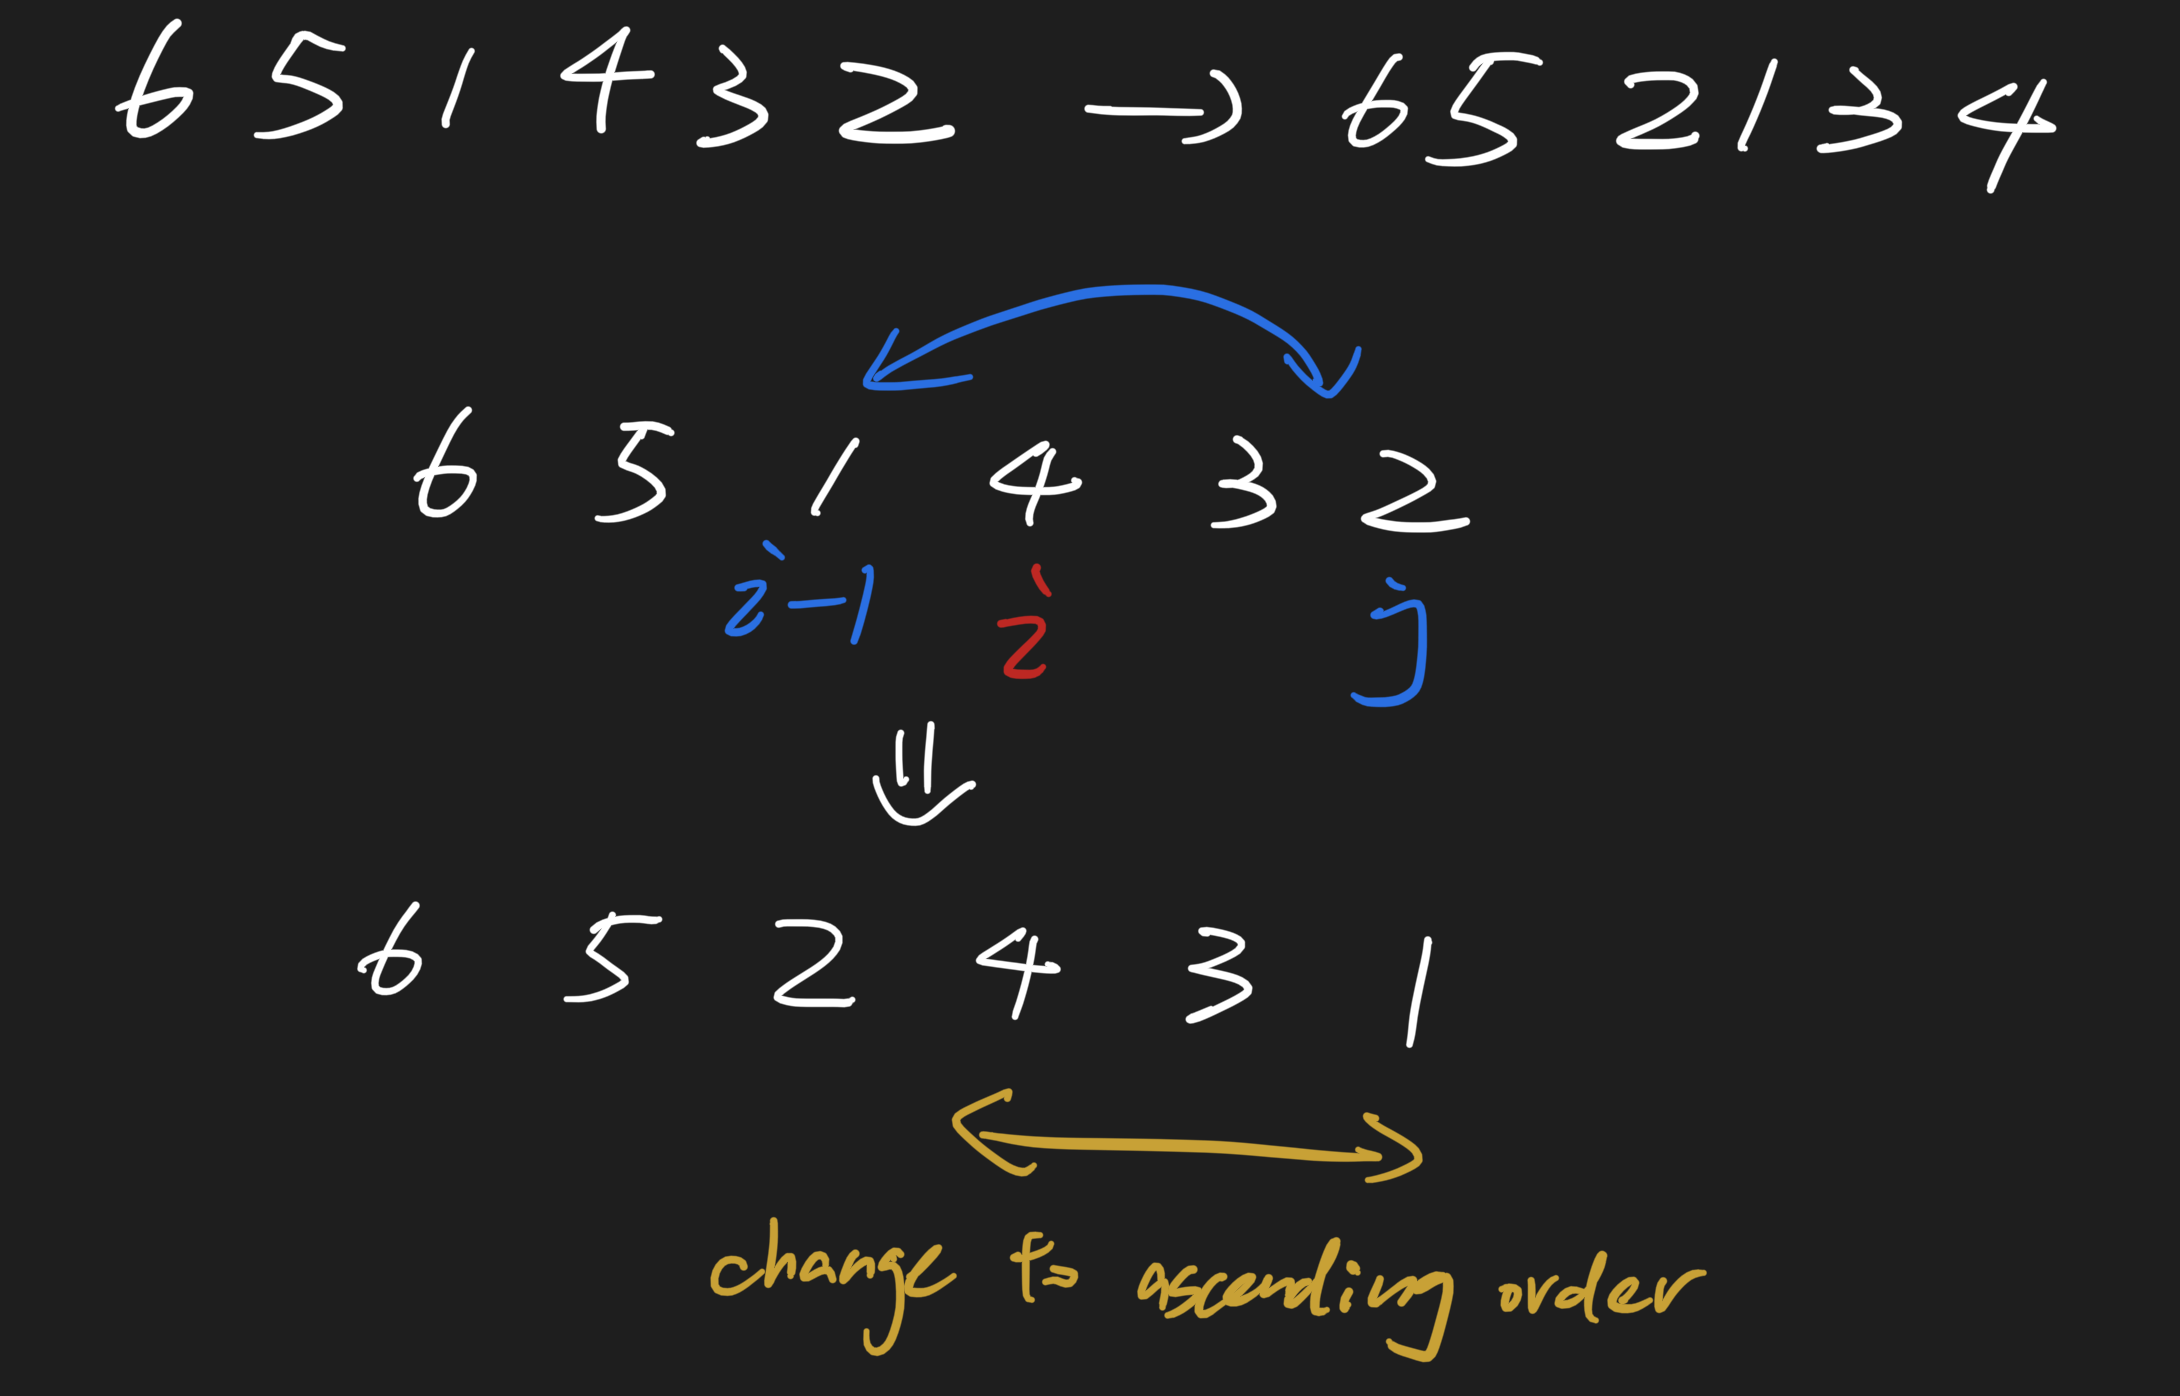 6 5 1 4 3 2 → 6 5 2 1 3 4
6 5 1 4 3 2
i-1 i j
⇓
6 5 2 4 3 1
change to ascending order